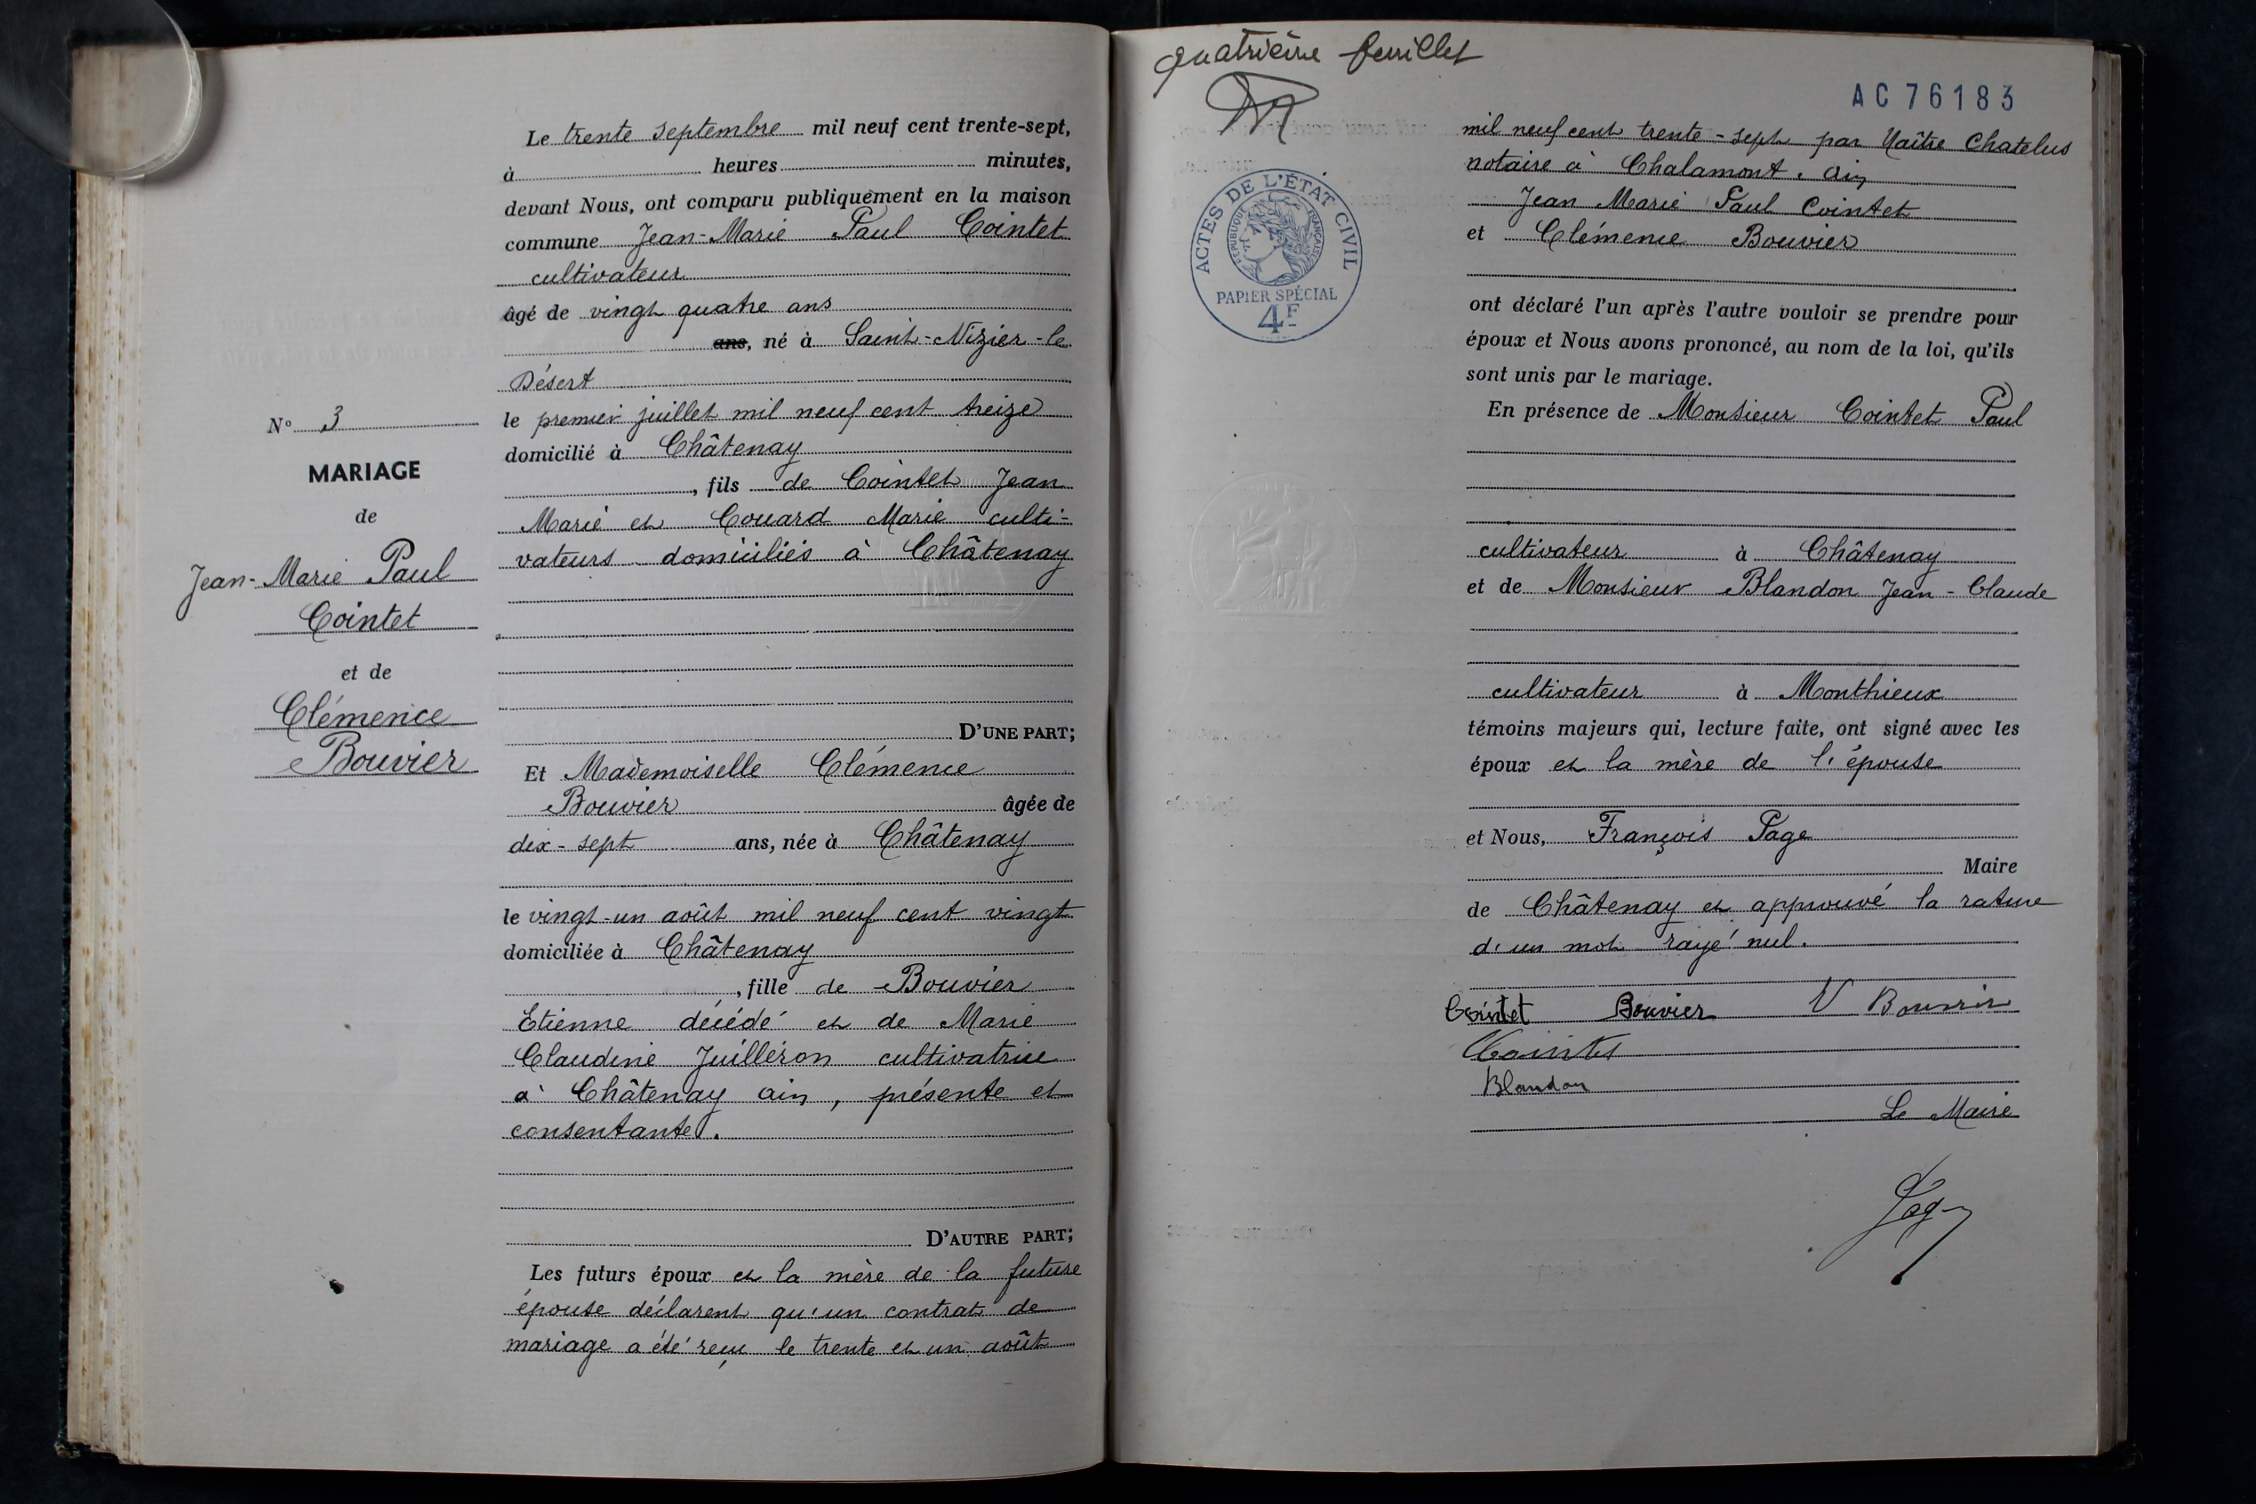 N° 3
MARIAGE
de
Jean-Marie Paul
Cointet
et de
Clémence
Bouvier
Le trente septembre mil neuf cent trente-sept,
à heures minutes,
devant Nous, ont comparu publiquement en la maison
commune Jean-Marie Paul Cointet
cultivateur
âgé de vingt quatre ans
ans, né à Saint-Nizier-le
Désert
le premier juillet mil neuf cent treize
domicilié à Châtenay
, fils de Cointet Jean
Marie et Couard Marie culti-
vateurs domiciliés à Châtenay
D'UNE PART;
Et Mademoiselle Clémence
Bouvier âgée de
dix-sept ans, née à Châtenay
le vingt-un août mil neuf cent vingt
domiciliée à Châtenay
, fille de Bouvier
Etienne décédé et de Marie
Claudine Juilléron cultivatrice
à Châtenay ain, présente et
consentante.
D'AUTRE PART;
Les futurs époux et la mère de la future
épouse déclarent qu'un contrat de
mariage a été reçu le trente et un août
quatrième feuillet
AC 76183
ACTES DE L'ÉTAT CIVIL
RÉPUBLIQUE FRANÇAISE
PAPIER SPÉCIAL
4F
mil neuf cent trente-sept par Maître Chatelus
notaire à Chalamont. ain
Jean Marie Paul Cointet
et Clémence Bouvier
ont déclaré l'un après l'autre vouloir se prendre pour
époux et Nous avons prononcé, au nom de la loi, qu'ils
sont unis par le mariage.
En présence de Monsieur Cointet Paul
cultivateur à Châtenay
et de Monsieur Blandon Jean-Claude
cultivateur à Monthieux
témoins majeurs qui, lecture faite, ont signé avec les
époux et la mère de l'épouse
et Nous, François Page
Maire
de Châtenay et approuvé la rature
d'un mot rayé nul.
Cointet Bouvier V Bouvier
Cointet
Blandon
Le Maire
Page